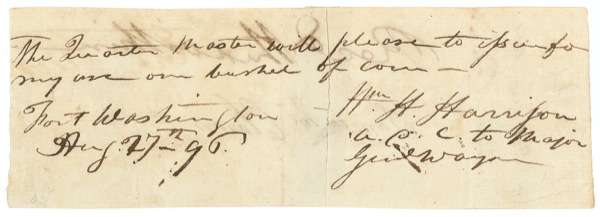 The Quarter Master will please to issue fo
my use one bushel of corn —
Fort Washington
Aug. 27th 96.
Wm H. Harrison
a. D. C. to Major
Genl Wayne